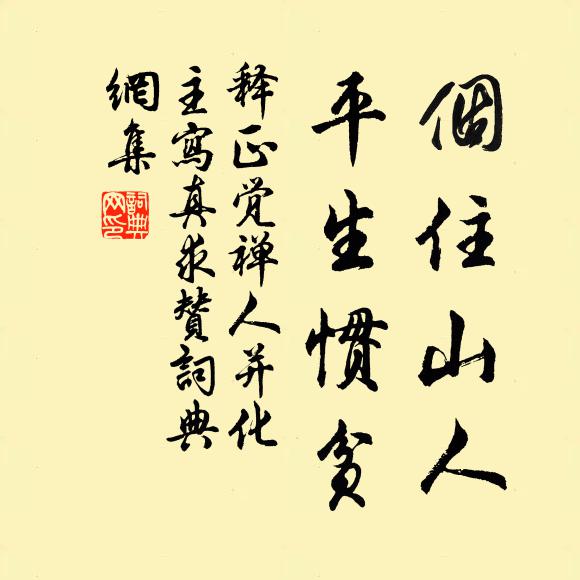 個住山人
平生慣貧
释正觉禅人并化
主寫真求賛詞典
網集
詞典
网印